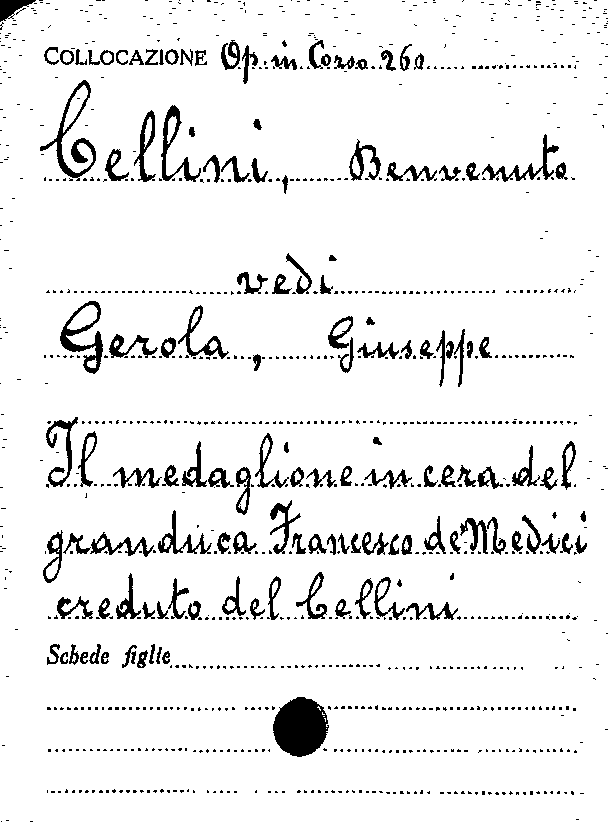 COLLOCAZIONE Op. in Corso 260
Cellini, Benvenuto
vedi
Gerola, Giuseppe
Il medaglione in cera del
granduca Francesco de' Medici
creduto del Cellini
Schede figlie